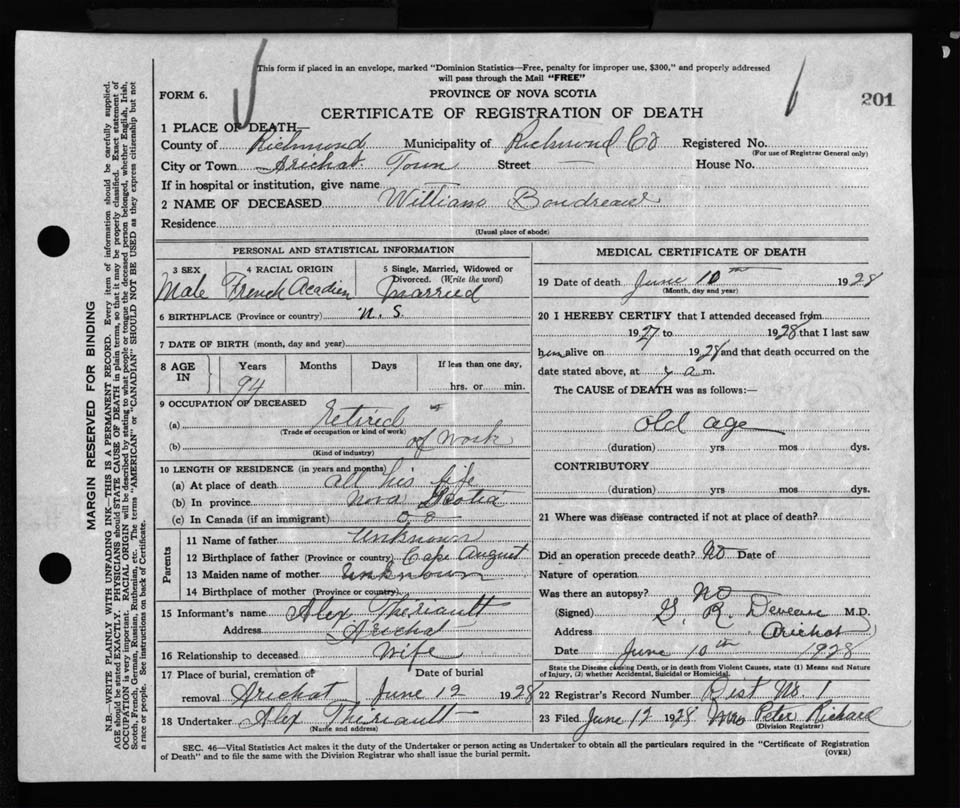 This form if placed in an envelope, marked "Dominion Statistics—Free, penalty for improper use, $300," and properly addressed
will pass through the Mail "FREE"
FORM 6.
PROVINCE OF NOVA SCOTIA
201
CERTIFICATE OF REGISTRATION OF DEATH
1 PLACE OF DEATH—
County of Richmond Municipality of Richmond Co Registered No.
(For use of Registrar General only)
City or Town Arichat Town Street — House No.
If in hospital or institution, give name —
2 NAME OF DECEASED William Boudreau
Residence
(Usual place of abode)
PERSONAL AND STATISTICAL INFORMATION
3 SEX 4 RACIAL ORIGIN 5 Single, Married, Widowed or
Divorced. (Write the word)
Male French Acadien Married
6 BIRTHPLACE (Province or country) N. S.
7 DATE OF BIRTH (month, day and year)
8 AGE IN Years Months Days If less than one day,
94 hrs. or min.
9 OCCUPATION OF DECEASED
(a) Retired
(Trade or occupation or kind of work)
(b) of Work
(Kind of industry)
10 LENGTH OF RESIDENCE (in years and months)
(a) At place of death all his life
(b) In province Nova Scotia
(c) In Canada (if an immigrant)
Parents
11 Name of father Unknown
12 Birthplace of father (Province or country) Cape August
13 Maiden name of mother Unknown
14 Birthplace of mother (Province or country)
15 Informant's name Alex Theriault
Address Arichat
16 Relationship to deceased Wife
17 Place of burial, cremation or Date of burial
removal Arichat June 12 1928
18 Undertaker Alex Theriault
(Name and address)
MEDICAL CERTIFICATE OF DEATH
19 Date of death June 10th 1928
(Month, day and year)
20 I HEREBY CERTIFY that I attended deceased from
1927 to 1928 that I last saw
him alive on 1928 and that death occurred on the
date stated above, at 7 a m.
The CAUSE of DEATH was as follows:—
old age
(duration) yrs mos dys.
CONTRIBUTORY
(duration) yrs mos dys.
21 Where was disease contracted if not at place of death?
Did an operation precede death? No Date of
Nature of operation
Was there an autopsy? No
(Signed) G. R. Deveau M.D.
Address Arichat
Date June 10th 1928
State the Disease causing Death, or in death from Violent Causes, state (1) Means and Nature
of Injury, (2) whether Accidental, Suicidal or Homicidal.
22 Registrar's Record Number Dist No. 1
23 Filed June 12 1928 Mrs Peter Richard
(Division Registrar)
SEC. 46—Vital Statistics Act makes it the duty of the Undertaker or person acting as Undertaker to obtain all the particulars required in the "Certificate of Registration
of Death" and to file the same with the Division Registrar who shall issue the burial permit.
(OVER)
MARGIN RESERVED FOR BINDING
N.B.—WRITE PLAINLY WITH UNFADING INK—THIS IS A PERMANENT RECORD. Every item of information should be carefully supplied.
AGE should be stated EXACTLY. PHYSICIANS should STATE CAUSE OF DEATH in plain terms, so that it may be properly classified. Exact statement of
OCCUPATION is very important. RACIAL ORIGIN will be described by stating to what people or tongue the deceased person belonged, whether English, Irish,
Scotch, French, German, Russian, Ruthenian, etc. The terms "AMERICAN" or "CANADIAN" SHOULD NOT BE USED as they express citizenship but not
a race or people. See instructions on back of Certificate.